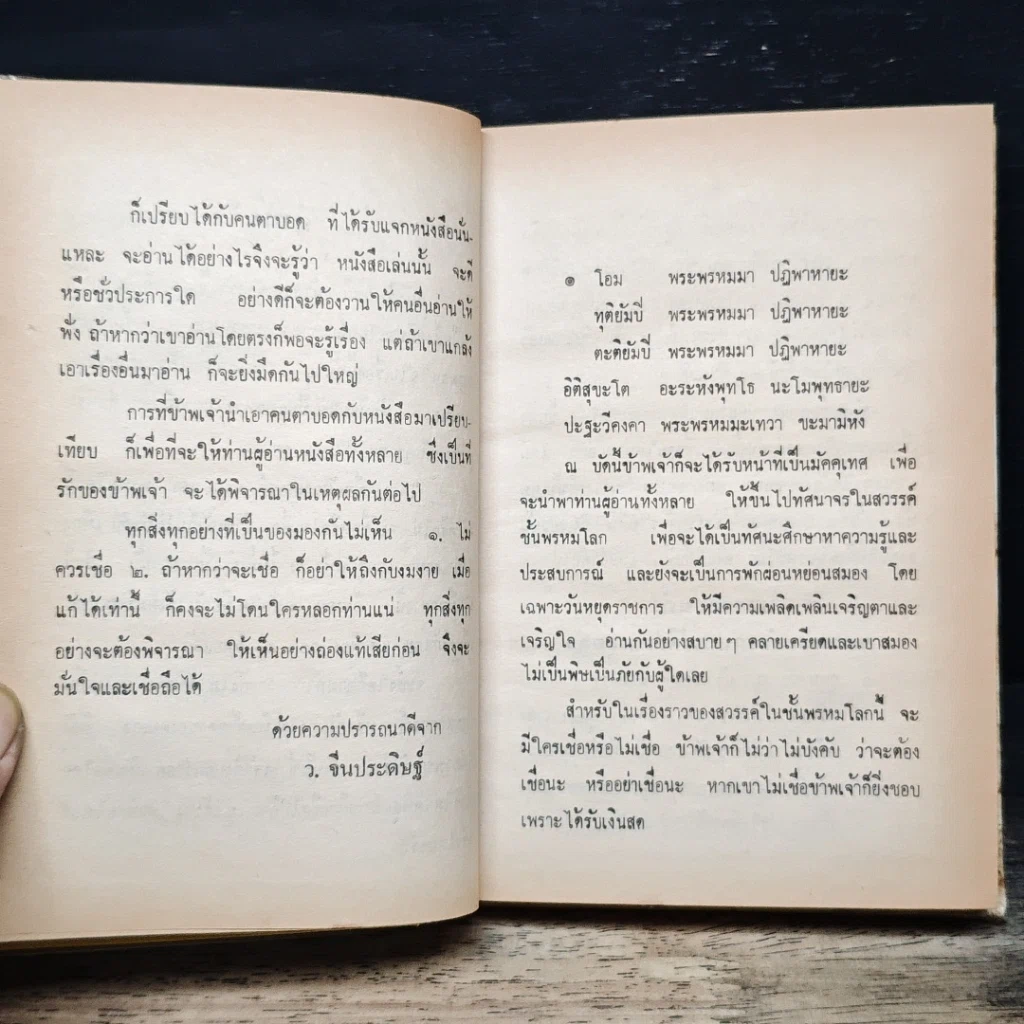 ก็เปรียบได้กับคนตาบอด ที่ได้รับแจกหนังสือนั้น-
แหละ จะอ่านได้อย่างไรจึงจะรู้ว่า หนังสือเล่นนั้น จะดี
หรือชั่วประการใด อย่างดีก็จะต้องวานให้คนอื่นอ่านให้
ฟัง ถ้าหากว่าเขาอ่านโดยตรงก็พอจะรู้เรื่อง แต่ถ้าเขาแกล้ง
เอาเรื่องอื่นมาอ่าน ก็จะยิ่งมืดกันไปใหญ่
การที่ข้าพเจ้านำเอาคนตาบอดกับหนังสือมาเปรียบ-
เทียบ ก็เพื่อที่จะให้ท่านผู้อ่านหนังสือทั้งหลาย ซึ่งเป็นที่
รักของข้าพเจ้า จะได้พิจารณาในเหตุผลกันต่อไป
ทุกสิ่งทุกอย่างที่เป็นของมองกันไม่เห็น ๑. ไม่
ควรเชื่อ ๒. ถ้าหากว่าจะเชื่อ ก็อย่าให้ถึงกับงมงาย เมื่อ
แก้ได้เท่านี้ ก็คงจะไม่โดนใครหลอกท่านแน่ ทุกสิ่งทุก
อย่างจะต้องพิจารณา ให้เห็นอย่างถ่องแท้เสียก่อน จึงจะ
มั่นใจและเชื่อถือได้
ด้วยความปรารถนาดีจาก
ว. จีนประดิษฐ์
๑ โอม พระพรหมมา ปฏิพาหายะ
ทุติยัมปี่ พระพรหมมา ปฏิพาหายะ
ตะติยัมปี่ พระพรหมมา ปฏิพาหายะ
อิติสุขะโต อะระหังพุทโธ นะโมพุทธายะ
ปะฐะวีคงคา พระพรหมมะเทวา ขะมามิหัง
ณ บัดนี้ข้าพเจ้าก็จะได้รับหน้าที่เป็นมัคคุเทศ เพื่อ
จะนำพาท่านผู้อ่านทั้งหลาย ให้ขึ้นไปทัศนาจรในสวรรค์
ชั้นพรหมโลก เพื่อจะได้เป็นทัศนะศึกษาหาความรู้และ
ประสบการณ์ และยังจะเป็นการพักผ่อนหย่อนสมอง โดย
เฉพาะวันหยุดราชการ ให้มีความเพลิดเพลินเจริญตาและ
เจริญใจ อ่านกันอย่างสบายๆ คลายเครียดและเบาสมอง
ไม่เป็นพิษเป็นภัยกับผู้ใดเลย
สำหรับในเรื่องราวของสวรรค์ในชั้นพรหมโลกนี้ จะ
มีใครเชื่อหรือไม่เชื่อ ข้าพเจ้าก็ไม่ว่าไม่บังคับ ว่าจะต้อง
เชื่อนะ หรืออย่าเชื่อนะ หากเขาไม่เชื่อข้าพเจ้าก็ยิ่งชอบ
เพราะได้รับเงินสด